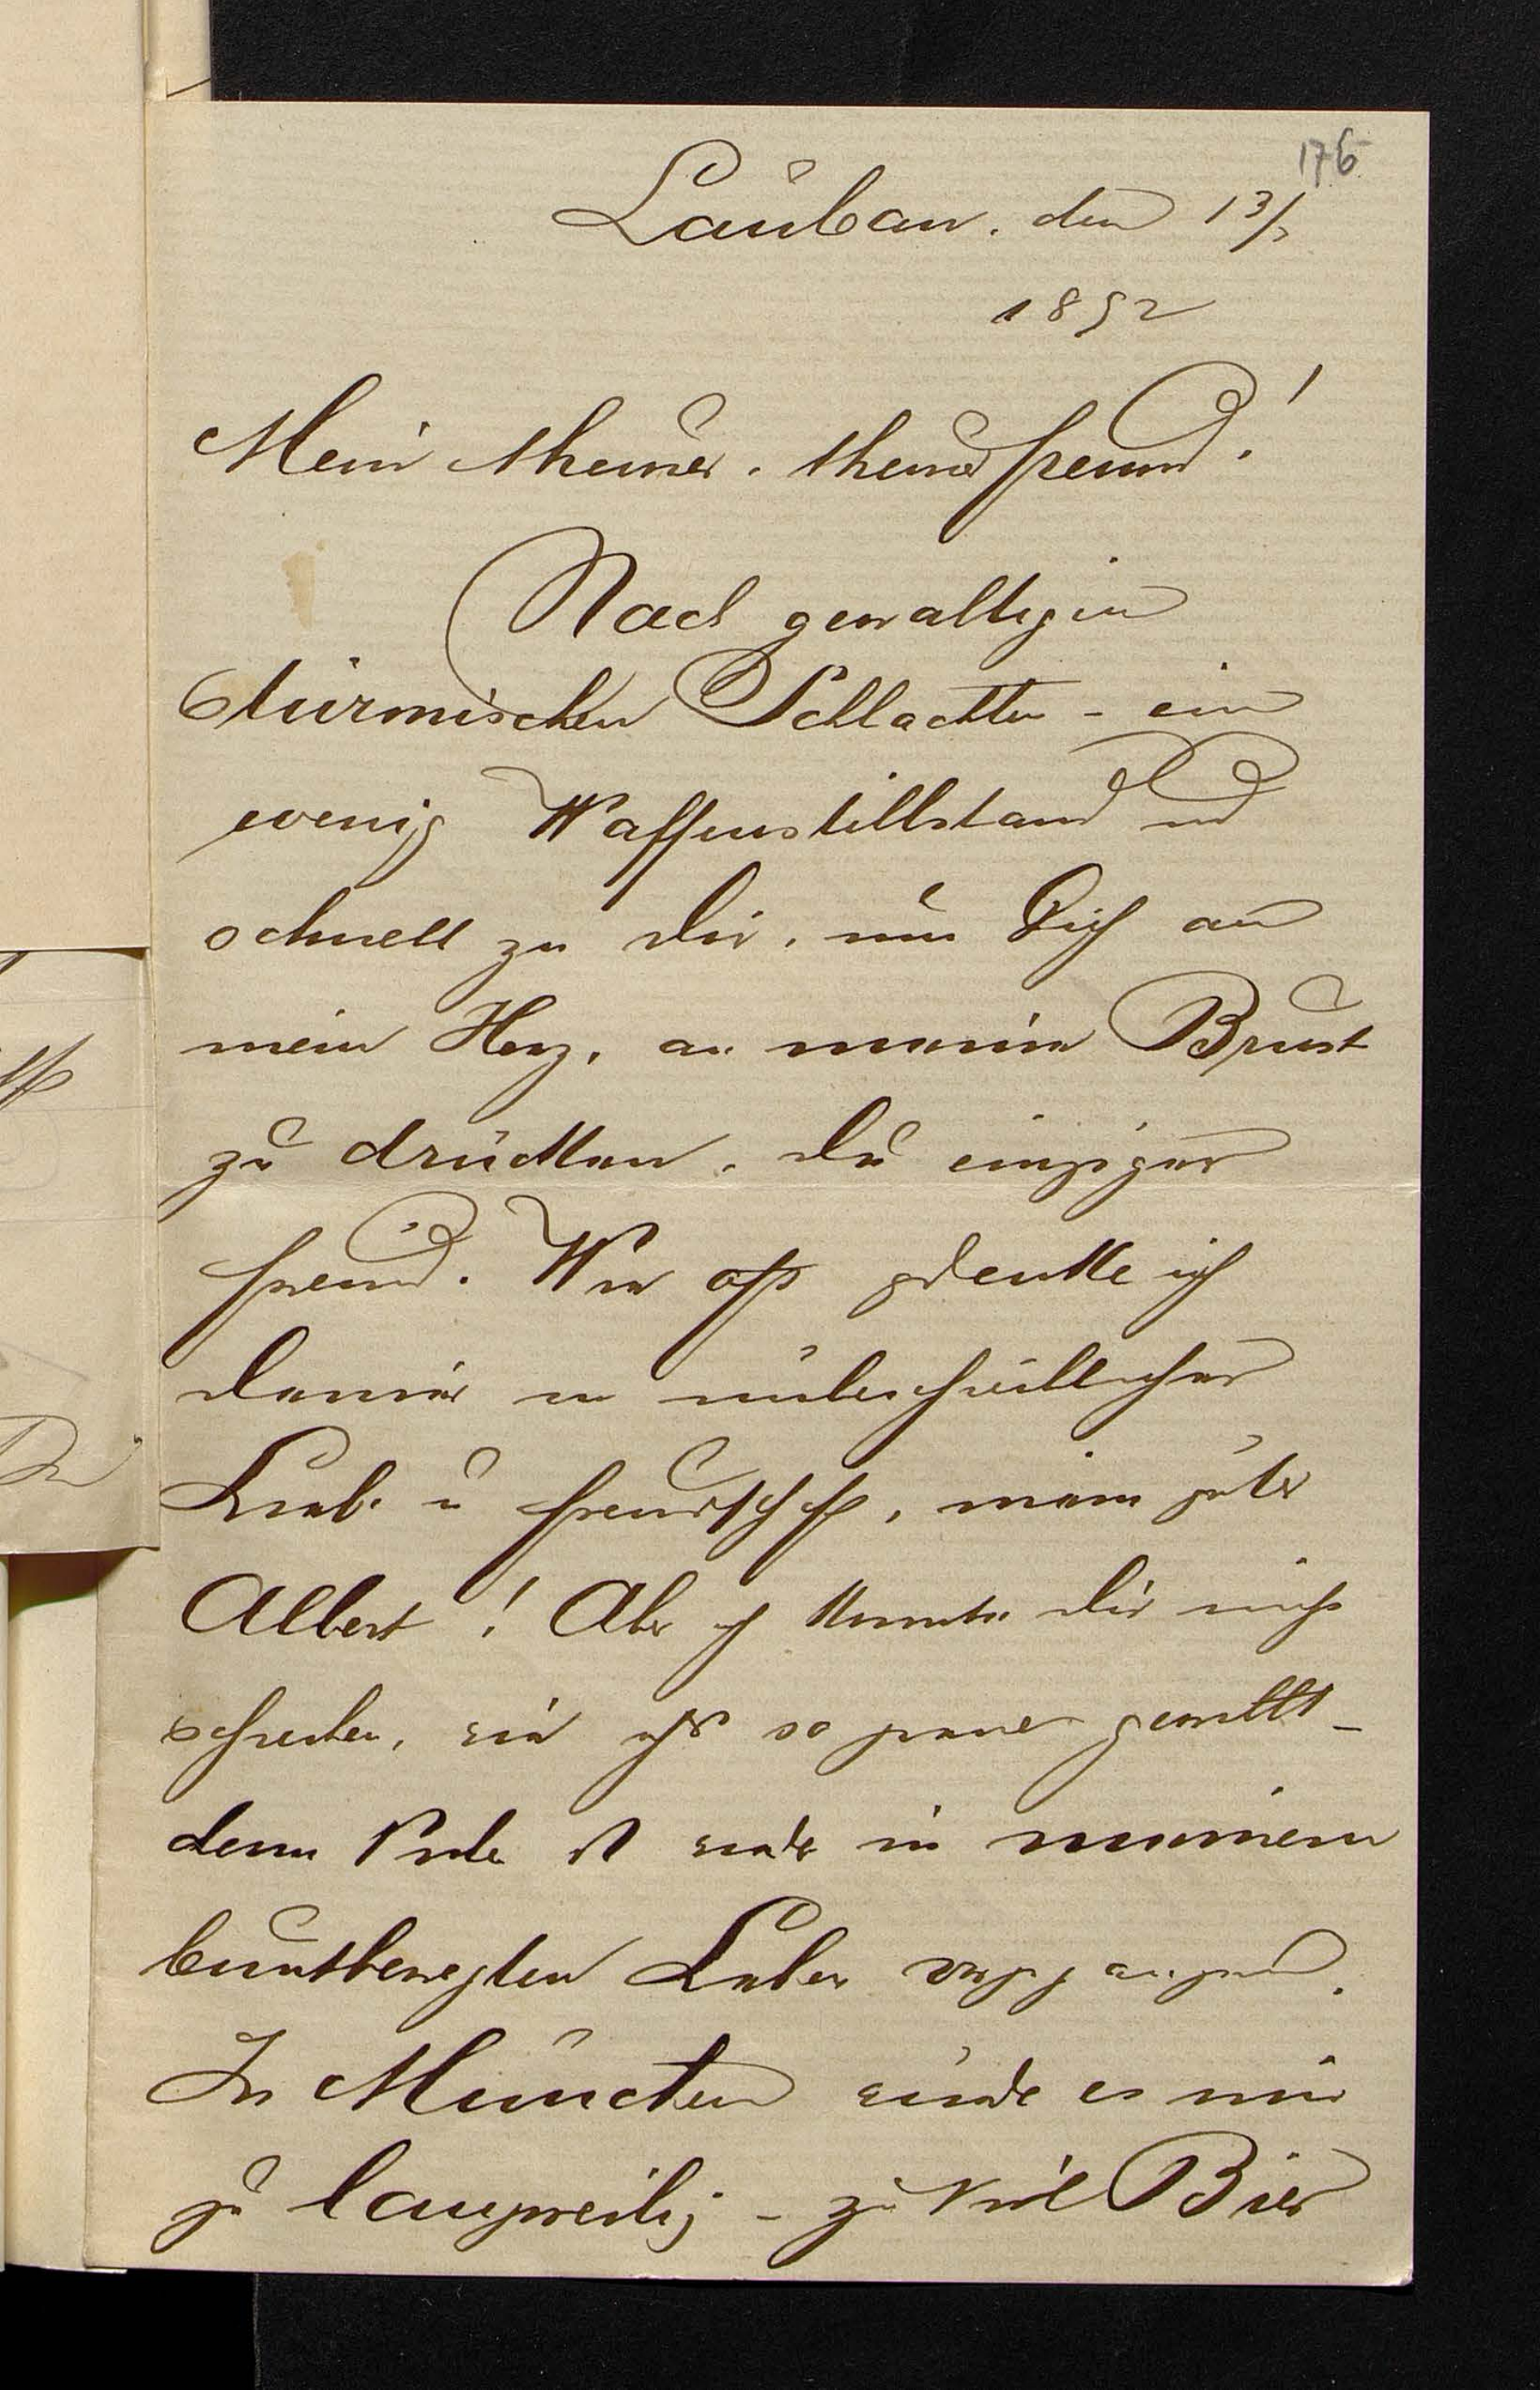 176
Lauban, den 13/
1892
Mein theurer, theurer Freund!
Nach gewaltigen
stürmischen Schlachten - ein
wenig Waffenstillstand und
schnell zu Dir, um Dich an
mein Herz, an meine Brust
zu drücken, Du einziger
Freund. Wie oft gedenke ich
Deiner in unter
Liebe u Freundschft, mein guter
Albert! Aber ich konnte Dir nicht
schreiben, wie ich so gerne gewollt -
denn Viele ist wieder in meinem
buntbewegten Leben vorgegangen.
In München wurde es mir
zu langweilig - zu viel Bier